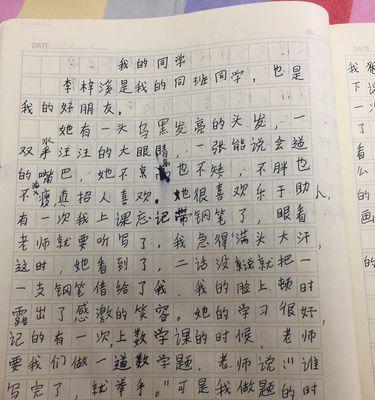 DATE
No.
我的同学
李梓溪是我的同班同学，也是
我的好朋友。
她有一头乌黑发亮的头发，一
双水汪汪的大眼睛，一张能说会道
的嘴巴，她不高也不矮，不胖也
不瘦真招人喜欢。她很喜欢乐于助人，
有一次我上课忘记带钢笔了，眼看
老师就要听写了，我急得满头大汗，
这时，她看到了，二话没说就把一
一支钢笔借给了我，我的脸上顿时
露出了感激的笑容。她的学习很好，
记的有一次上数学课的时候，老师
要我们做一道数学题，老师说："谁
写完了，就举手。"可是我做题的时
DATE
我
下
一
了
看
么
的
的